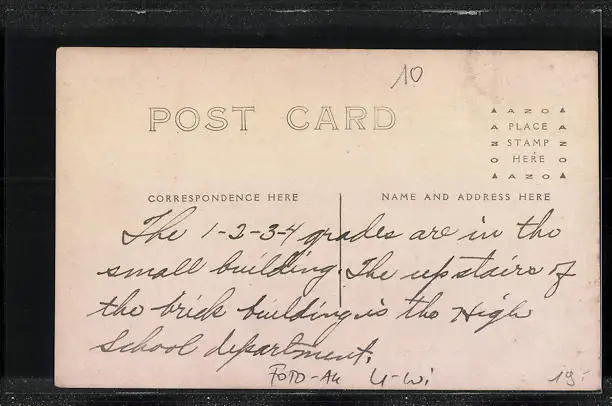 10
POST CARD
AZO
PLACE
STAMP
HERE
AZO
CORRESPONDENCE HERE
NAME AND ADDRESS HERE
The 1-2-3-4 grades are in the
small building. The upstairs of
the brick building is the High
School department.
FOTO-AK U-Wi
19.-